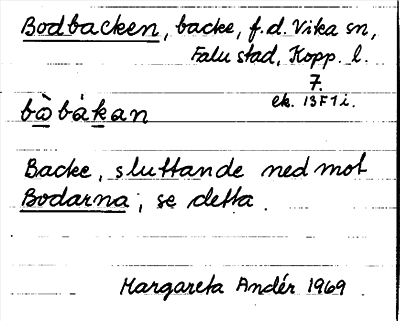 Bodbacken, backe, f.d. Vika sn,
Falu stad, Kopp. l.
7.
ek. 13F1i.
bò̀bákan
Backe, sluttande ned mot
Bodarna, se detta.
Margareta Andér 1969.